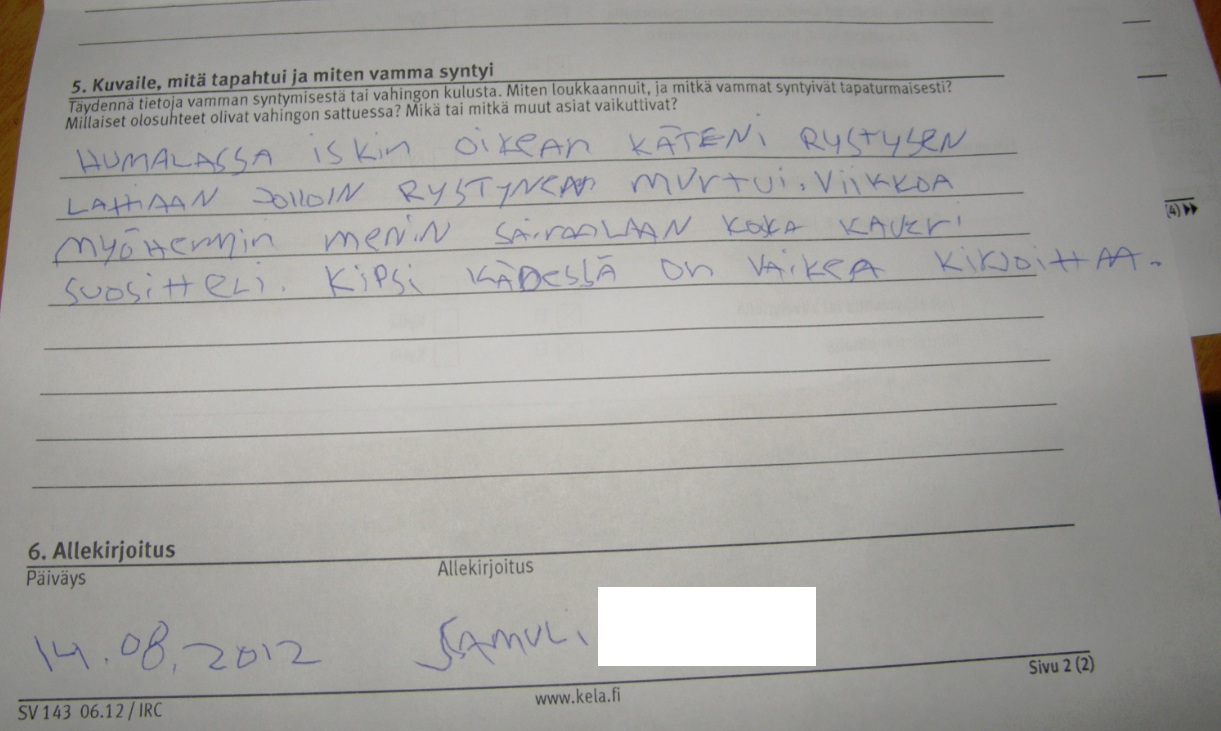 5. Kuvaile, mitä tapahtui ja miten vamma syntyi
Täydennä tietoja vamman syntymisestä tai vahingon kulusta. Miten loukkaannuit, ja mitkä vammat syntyivät tapaturmaisesti?
Millaiset olosuhteet olivat vahingon sattuessa? Mikä tai mitkä muut asiat vaikuttivat?
HUMALASSA iskin oikean KÄTENI RYSTYSEN
LATTIAAN JOLLOIN RYSTYNEN MURTUI. Viikkoa
MYÖHEMMIN MENIN SAIRAALAAN KOSKA KAVERI
SUOSITTELI. KIPSI KÄDESSÄ ON VAIKEA KIRJOITTAA.
(4)
6. Allekirjoitus
Päiväys Allekirjoitus
14.08.2012 SAMULI
Sivu 2 (2)
www.kela.fi
SV 143 06.12 / IRC